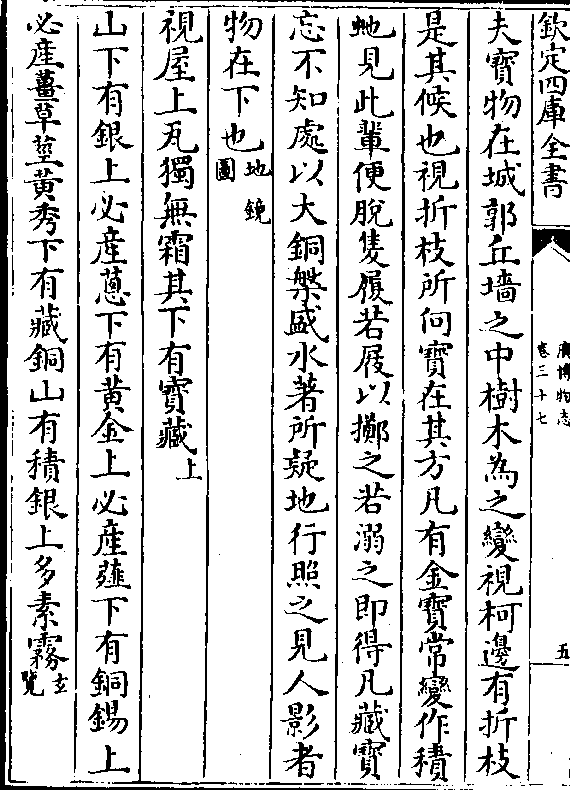 欽定四庫全書
廣博物志
卷三十七
五
夫寶物在城郭丘墻之中樹木為之變視柯邊有折枝
是其候也視折枝所向寶在其方凡有金寶常變作積
虵見此輩便脫隻履若屐以擲之若溺之即得凡藏寶
忘不知處以大銅槃盛水著所疑地行照之見人影者
物在下也地鏡圖
視屋上瓦獨無霜其下有寶藏上
山下有銀上必產蔥下有黃金上必產薤下有銅錫上
必產薑草莖黃秀下有藏銅山有積銀上多素霧玄覽